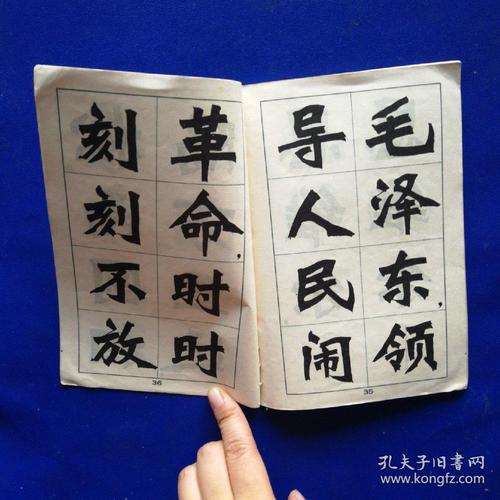 毛泽东,领
导人民闹
35
革命,时时
刻刻不放
36
孔夫子旧书网
www.kongfz.com